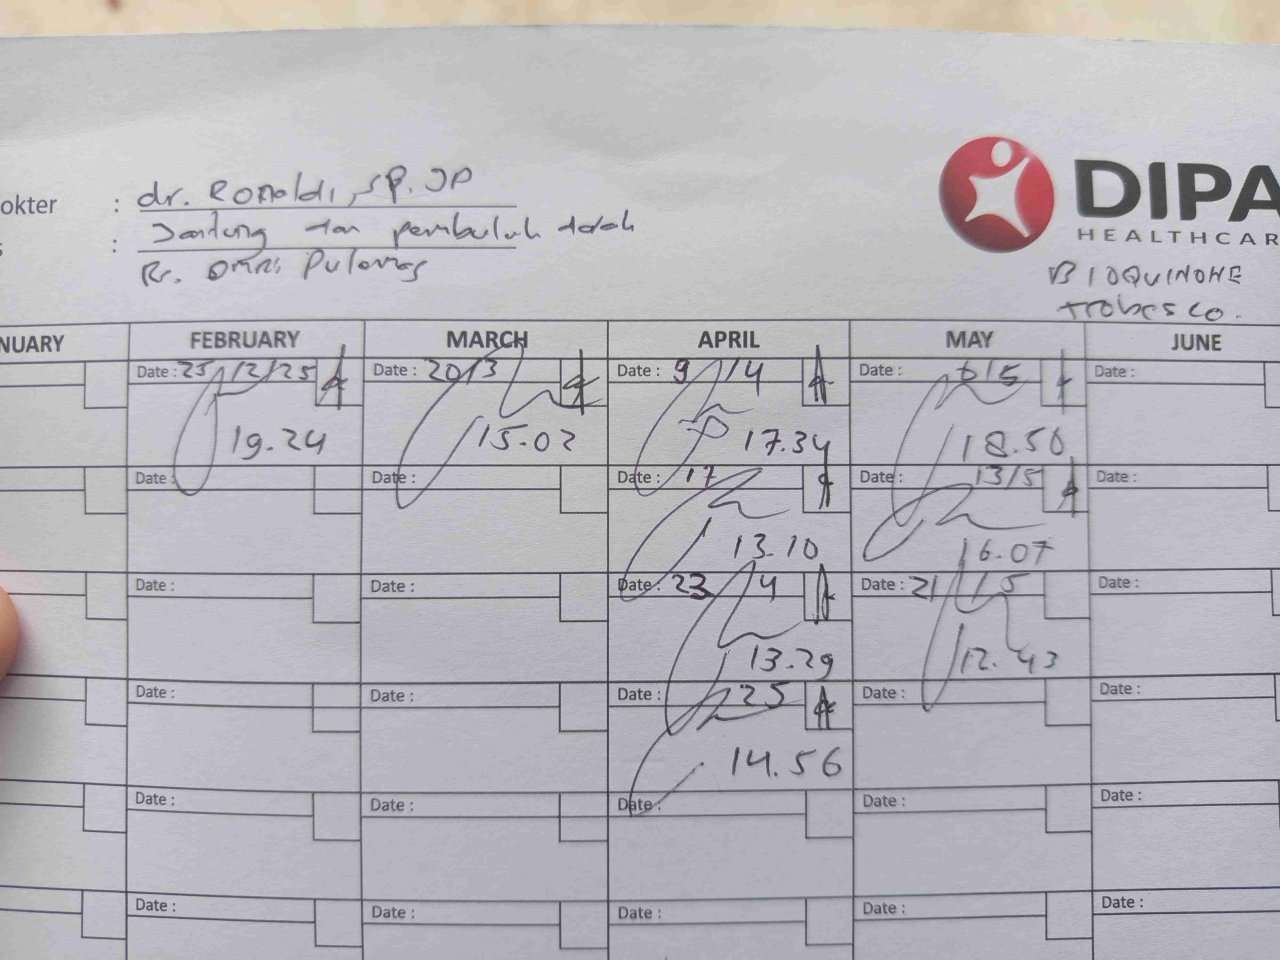 okter : dr. Ronaldi, SP. JP
s : Jantung dan pembuluh darah
Rs. OMNI Pulomas
DIPA
HEALTHCAR
BIOQUINONE
NUARY FEBRUARY MARCH APRIL MAY JUNE
Date : 25/2/25 Date : 20/3 Date : 9/4 Date : 6/5 Date :
19.24 15.02 17.34 18.50
Date : Date : Date : 17 Date : 13/5 Date :
13.10 16.07
Date : Date : Date : 23 4 Date : 21/5 Date :
13.29 12.43
Date : Date : Date : 25 Date : Date :
14.56
Date : Date : Date : Date : Date :
Date : Date : Date : Date : Date :